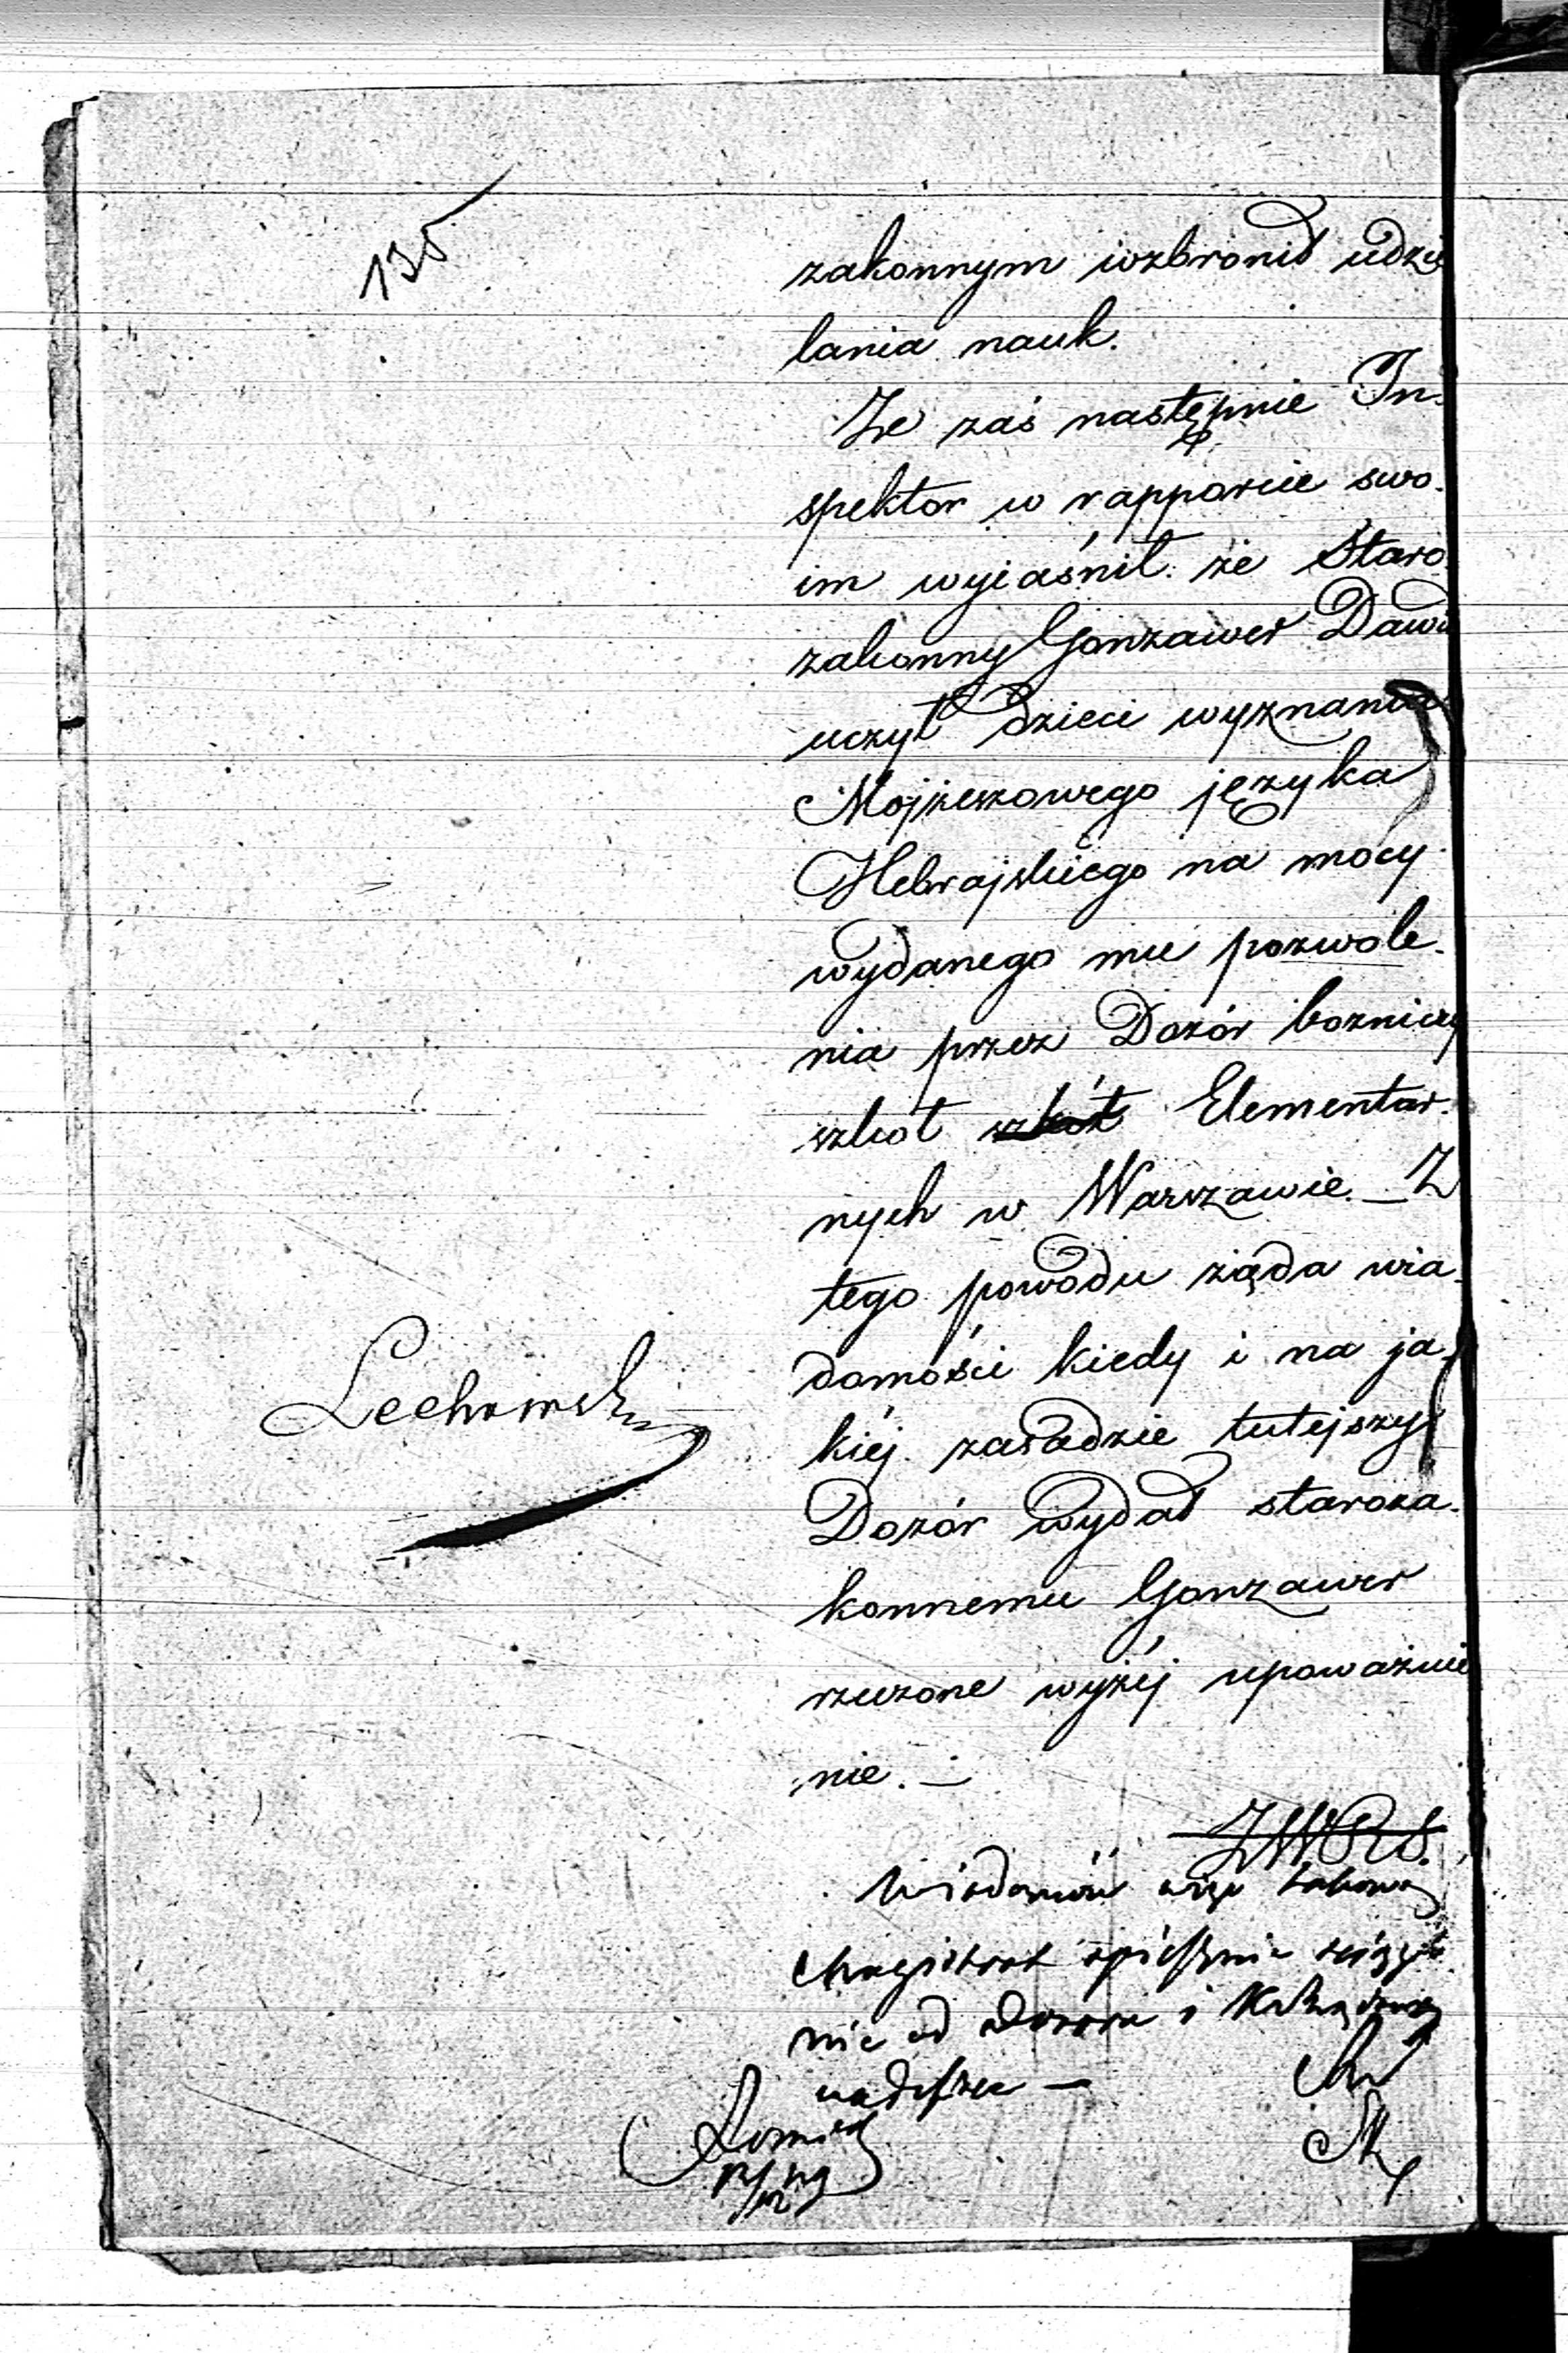 135
zakonnym wzbronił udzie
lania nauk.
Ze zaś następnie In-
spektor w rapporcie swo-
im wyjaśnił że Staro
zakonny Gonzawer Dawid
uczył dzieci wyznania
Mojżeszowego języka
Hebrajskiego na mocy
wydanego mu pozwole-
nia przez Dozór bozniczy
szkot szkół Elementar-
nych w Warszawie. — Z
tego powodu ząda wia-
domości kiedy i na ja-
kiéj zasadzie tutejszy
Dozór wydał staroza-
konnemu Gonzawer
rzeczone wyżéj upoważnie
nie. —
Lechowski
Wiadomość
Magistrat spiesznie ściągn
nie od Dozoru i
nadeszle —